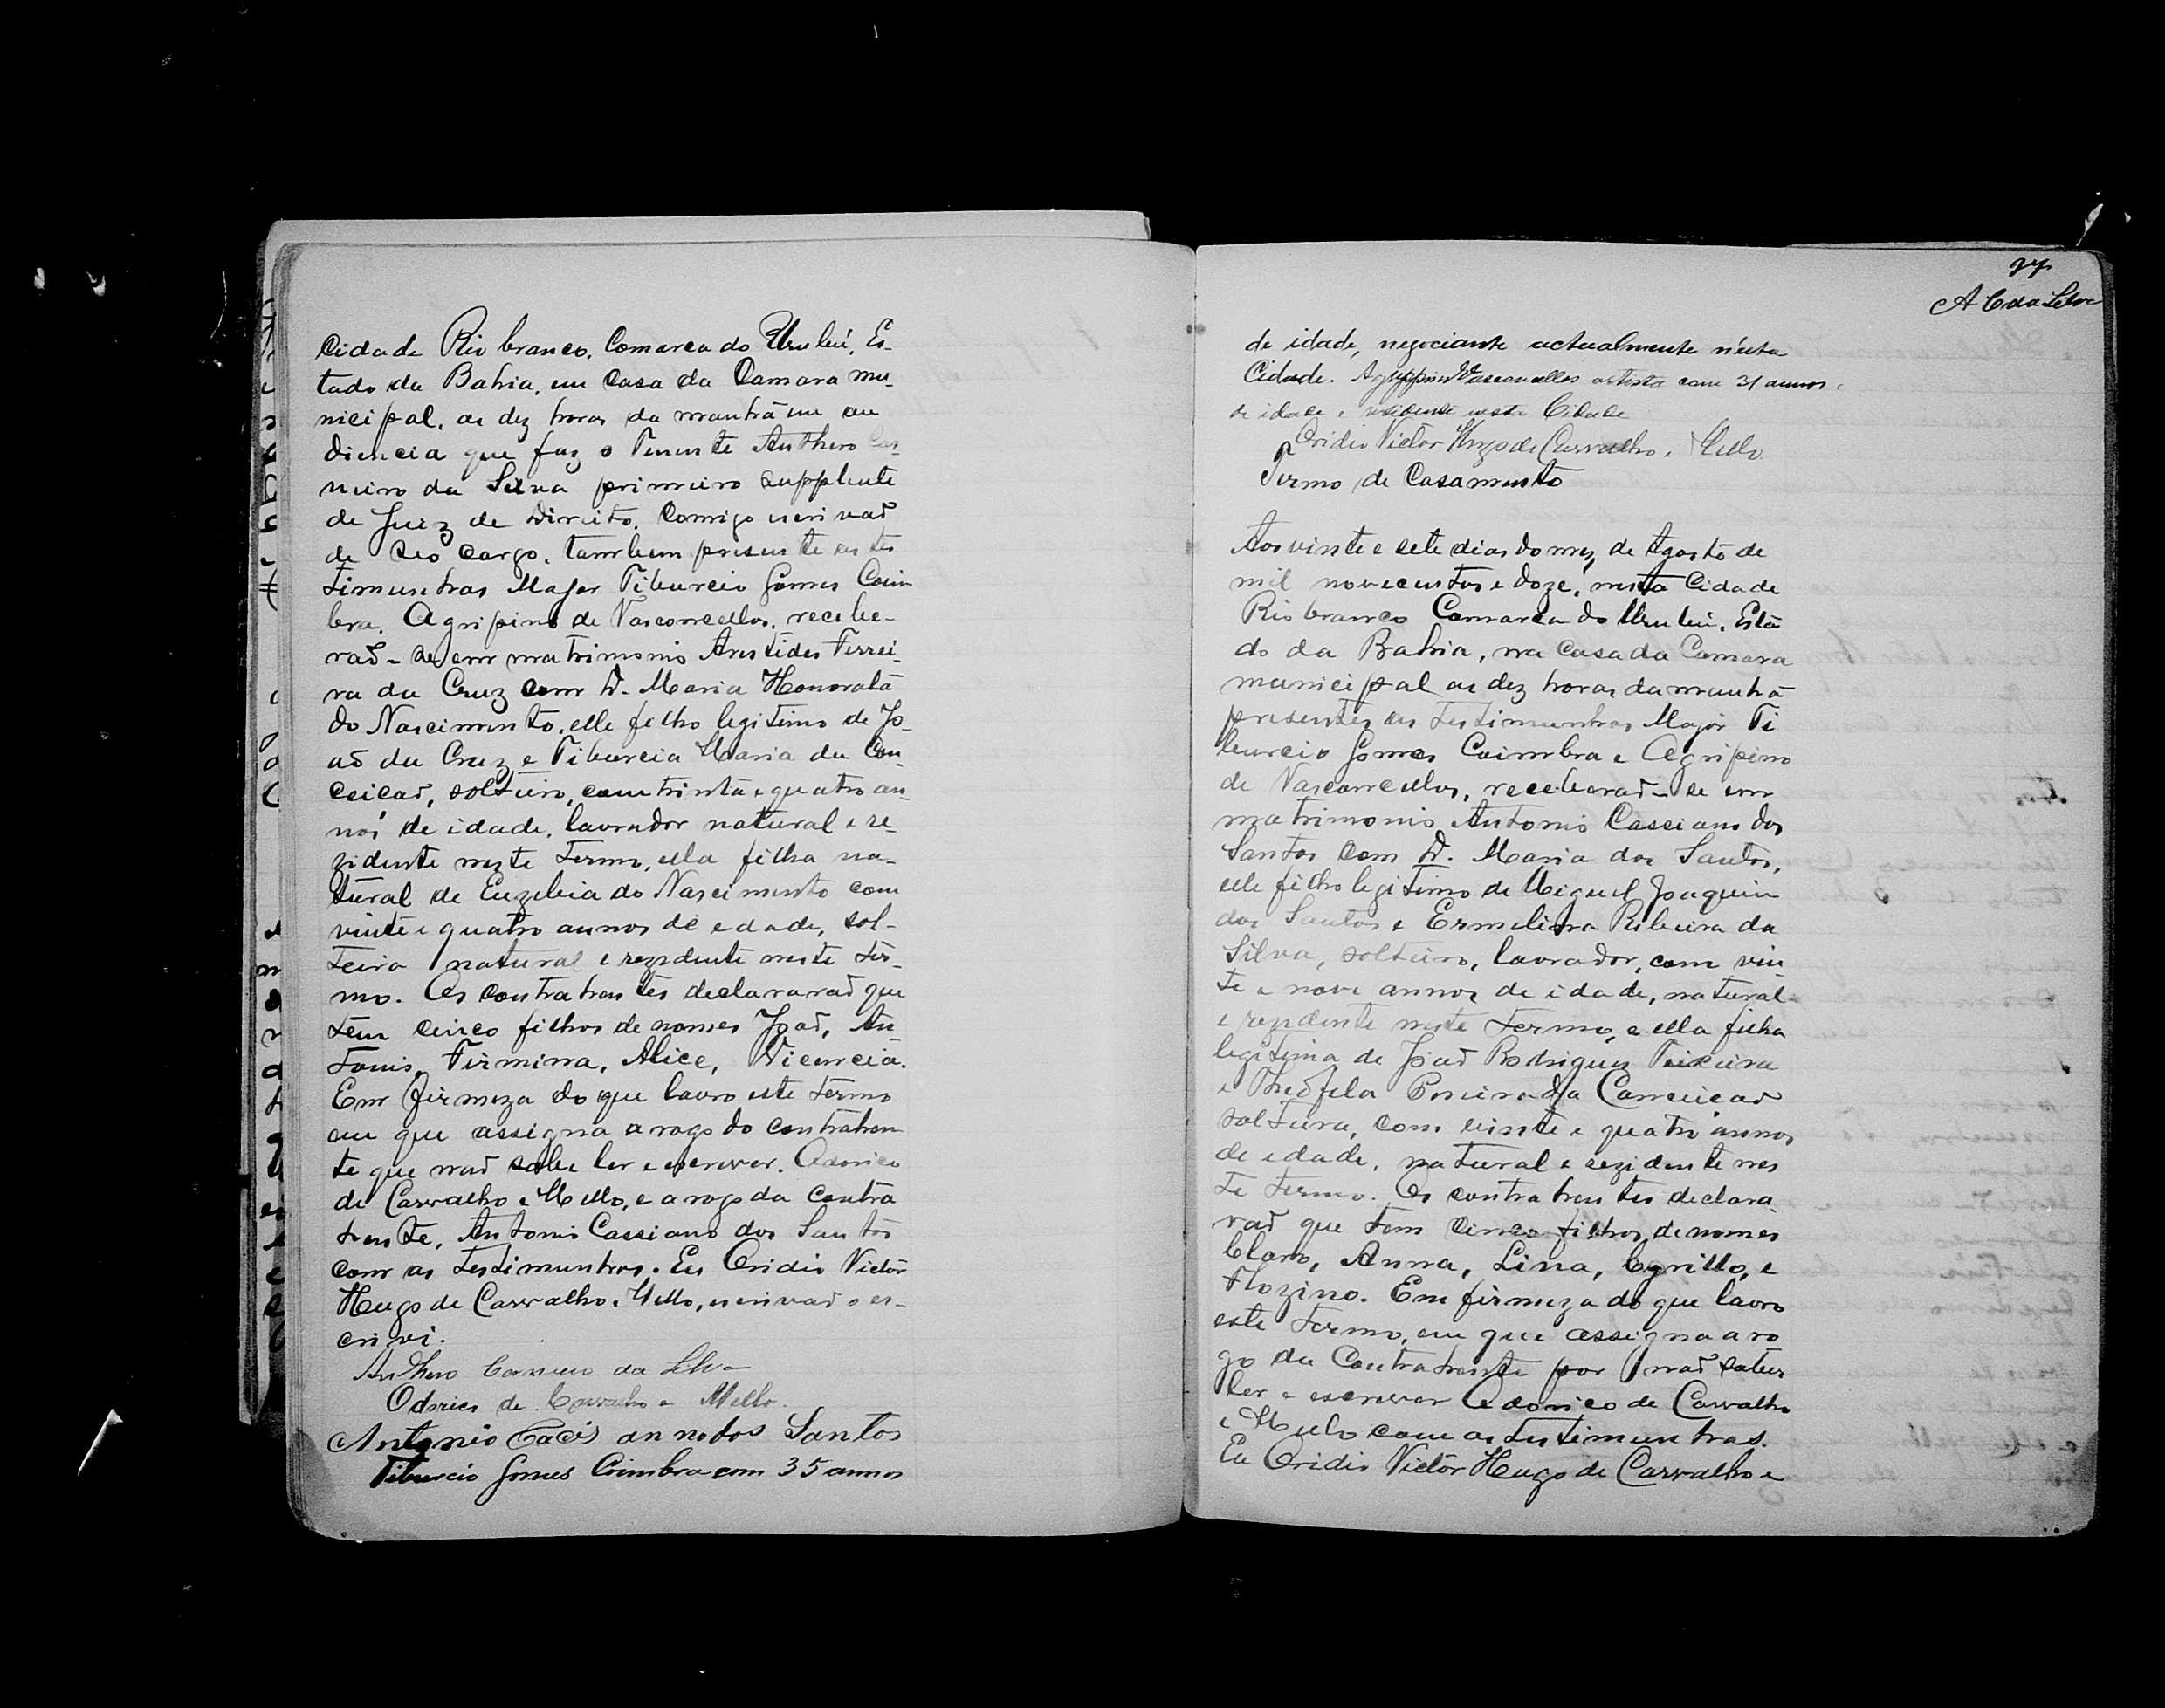 Cidade Rio branco, Comarca do Urubú, Es-
tado da Bahia, em Casa da Camara mu-
nicipal, as dez horas da manhã em au
diencia que faz o Tenente Anthero Car-
neiro da Silva primeiro supplente
de Juiz de Direito, Comigo escrivaõ
de seo cargo, tambem presente as tes
timunhas Major Tiburcio Gomes Coim
bra, Agripino de Vasconcellos, recebe-
raõ-se em matrimonio Aristides Ferrei-
ra da Cruz com D. Maria Honorata
do Nascimento, elle filho legitimo de Jo-
aõ da Cruz e Tiburcia Maria da Con-
ceicaõ, solteiro, com trinta e quatro an-
nos de idade, lavrador natural e re-
zidente neste Termo, ella filha na-
tural de Euzebia do Nascimento com
vinte e quatro annos de edade, sol-
teira natural e rezidente neste ter-
mo. Os contrahentes declararaõ que
têm cinco filhos de nomes Joaõ, An
tonio, Firmina, Alice, Vicencia.
Em firmeza do que lavro este termo
em que assigna a rogo do contrahen
te que naõ sabe ler e escrever. Odorico
de Carvalho e Mello, e a rogo da contra
hente, Antonio Cassiano dos Santos
com as testimunhas. Eu Ovidio Victor
Hugo de Carvalho e Mello, escrivaõ o es-
crivi.
Anthero Carneiro da Silva
Odorico de Carvalho e Mello.
Antonio Cacis an no dos Santos
Tiburcio Gomes Coimbra com 35 annos
27
A C da Silva
de idade, negociante actualmente n'esta
Cidade. Agrippino Vasconcellos artista com 31 annos
de idade e residente nesta Cidade
Ovidio Victor Hugo de Carvalho e Mello
Termo de Casamento
Aos vinte e sete dias do mez de Agosto de
mil novecentos e doze, nesta Cidade
Rio branco Comarca do Urubú, Esta
do da Bahia, na Casa da Camara
municipal as dez horas da manhã
presentes as testimunhas Major Ti
burcio Gomes Coimbra e Agripino
de Vasconcellos, receberaõ-se em
matrimonio Antonio Cassiano dos
Santos com D. Maria dos Santos,
elle filho legitimo de Miguel Joaquim
dos Santos e Ermelina Ribeira da
Silva, solteiro, lavrador, com vin-
te e nove annos de idade, natural
e rezidente neste Termo, e ella filha
legitima de Joaõ Rodrigues Teixeira
e Theofila Pereira da Conceiçaõ
solteira, com vinte e quatro annos
de edade, natural e rezidente nes
te Termo. Os contrahentes declara
raõ que tem cinco filhos, de nomes
Claro, Anna, Lina, Cyrillo, e
Flozino. Em firmeza do que lavro
este termo, em que assigna a ro
go da Contrahente por naõ saber
ler e escrever Odorico de Carvalho
e Mello com as testimunhas.
Eu Ovidio Victor Hugo de Carvalho e